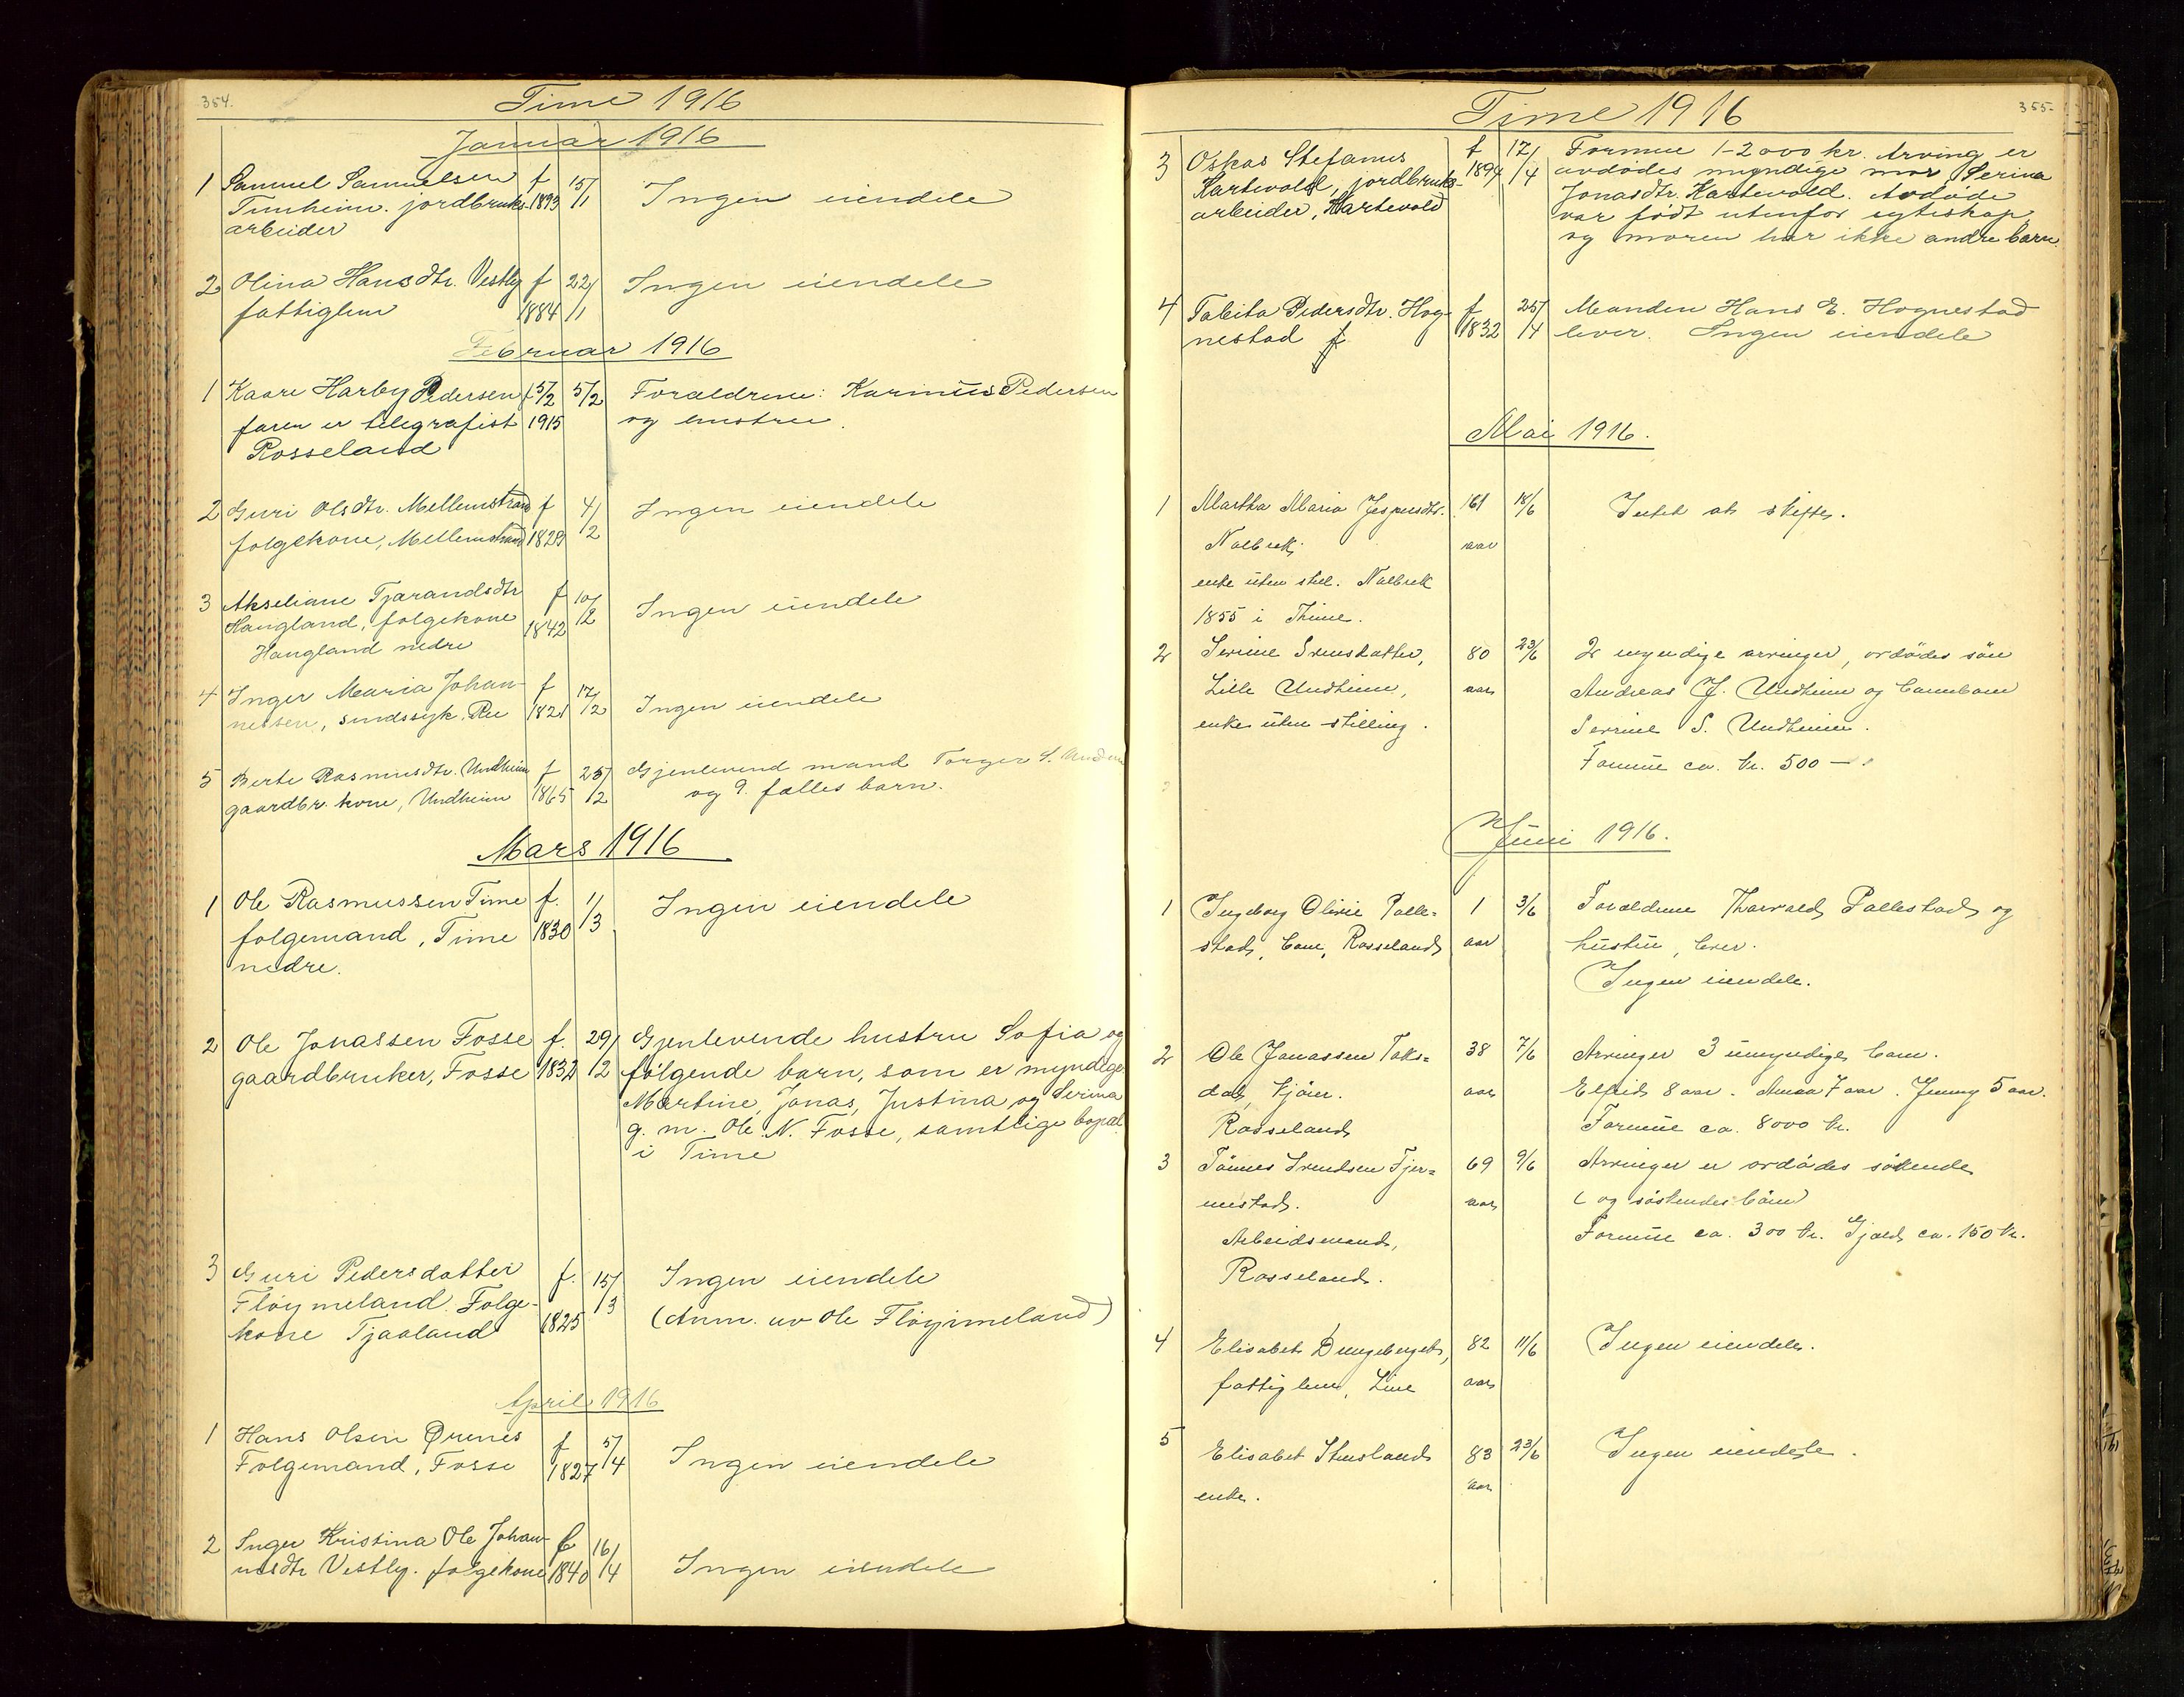 354.
Time 1916
Januar 1916
1 Samuel Samuelsen f 15/1 Ingen eiendele
Tunheim. jordbruks- 1893
arbeider
2 Olina Hansdtr. Vestly f 22/1 Ingen eiendele
fattiglem 1884
Februar 1916
1 Kaare Harby Pedersen f 15/2 5/2 Forældrene: Karinius Pedersen
faren er telegrafist 1915 og hustru.
Rosseland
2 Guri Olsdtr. Mellemstrand f 4/2 Ingen eiendele
folgekone, Mellemstrand 1829
3 Akseliane Tjarandsdtr f 10/2 Ingen eiendele
Haugland, folgekone 1842
Haugland nedre
4 Inger Maria Johan- f 17/2 Ingen eiendele
nessen, sindssyk, Re 1821
5 Berte Rasmusdtr. Undheim f 25/2 Gjenlevend mand Torger S.
gaardbr. kone, Undheim 1865 og 9. fælles barn.
Mars 1916
1 Ole Rasmussen Time f. 1/3 Ingen eiendele
folgemand, Time 1830
nedre.
2 Ole Jonassen Fosse f. 29/2 Gjenlevende hustru Sofia og
gaardbruker, Fosse 1832 følgende barn, som er myndige
Martine, Jonas, Justina og Serina
g. m. Ole N. Fosse, samtlige bopæl
i Time
3 Guri Pedersdatter f. 15/3 Ingen eiendele
Fløymeland. Folge- (Anm. av Ole Fløyimeland)
kone Tjaaland 1825
April 1916
1 Hans Olsen Ørenes f 5/4 Ingen eiendele
Folgemand, Fosse 1827
2 Inger Kristina Ole Johan- f 16/4 Ingen eiendele
nesdtr Vestly. folgekone 1840
355-
Time 1916
3 Oskar Stefanus f 17/4 Formue 1-2000 kr. Arving er
Kartevold, jordbruks- 1894 avdødes myndige mor Serina
arbeider, Kartevold Jonasdtr. Kartevold. Avdøde
var født utenfor egteskap,
og moren har ikke andre barn
4 Tabita Pedersdtr. Hog- f 25/4 Manden Hans E. Hognestad
nestad f. 1832 lever. Ingen eiendele
Mai 1916.
1 Martha Maria Jespersdtr. 161 18/6 Intet at skifte.
aar
enke uten stil.
1855 i Thime.
2 Serine Svensdatter, 80 23/6 2 myndige arvinger, avdødes søn
Lille Undheim, aar Andreas J. Undheim og barnebarn
enke uten stilling. Serine S. Undheim.
Formue ca. kr. 500 —
Juni 1916.
1 Ingeborg Olivie Palle= 1 3/6 Forældrene Thorvald Pallestad og
stad, barn, Rosseland aar hustru, lever.
Ingen eiendele.
2 Ole Jonassen Taks= 38 7/6 Arvinger 3 umyndige barn.
dal, kjører. aar Elfrid 8 aar. Anna 7 aar. Jenny 5 aar.
Rosseland Formue ca. 8000 kr.
3 Tønnes Svendsen Tjer= 69 9/6 Arvinger er avdødes søskende
mestad. aar og søskendes børn
Arbeidsmand, Formue ca. 300 kr. Gjæld ca. 150 kr.
Rosseland.
4 Elisabet 82 11/6 Ingen eiendele.
fattiglem, Line aar
5 Elisabet Stensland 83 23/6 Ingen eiendele.
enke. aar